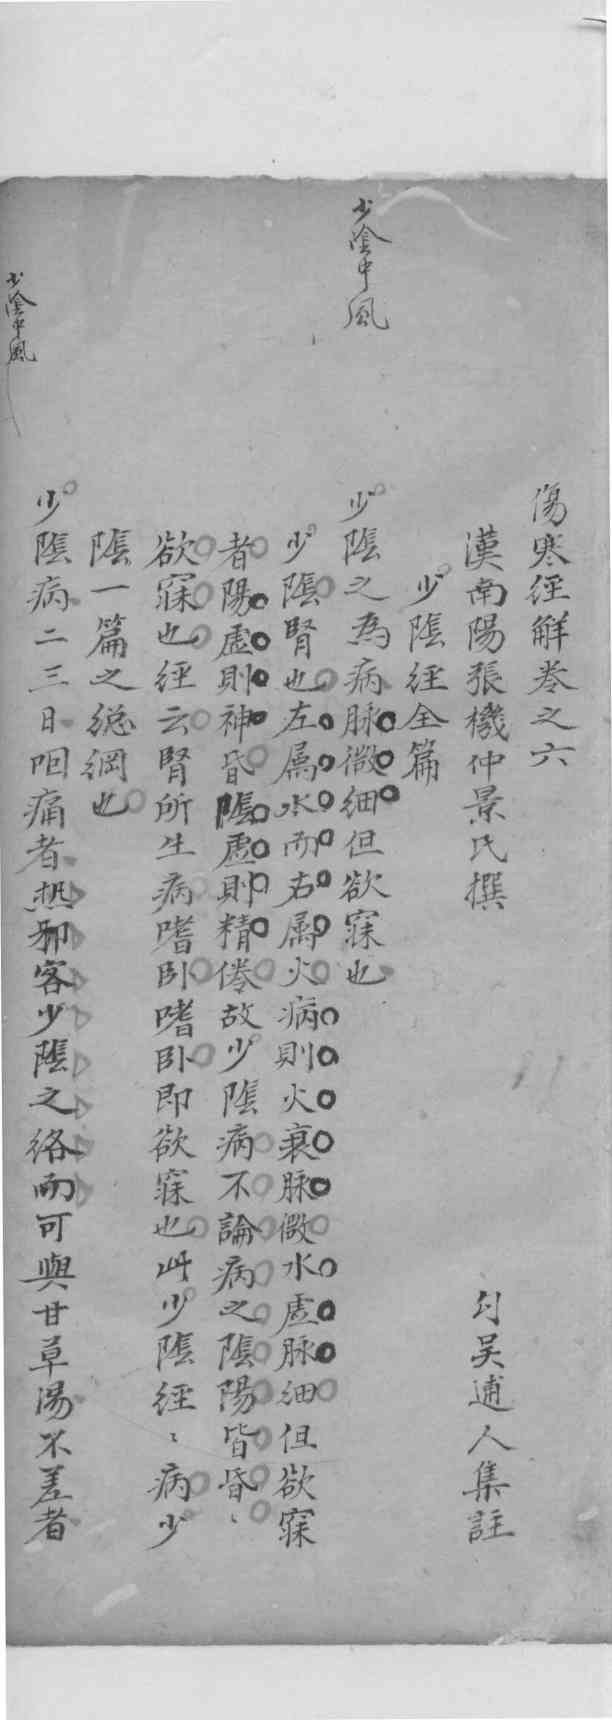 傷寒經解卷之六
漢南陽張機仲景氏撰
勾吳逋人集註
少陰經全篇
少陰中風
少陰之為病脉微細但欲寐也
少陰腎也左屬水而右屬火病則火衰脉微水虛脉細但欲寐
者陽虛則神昏陰虛則精倦故少陰病不論病之陰陽皆昏〻
欲寐也經云腎所生病嗜卧嗜卧即欲寐也此少陰經〻病少
陰一篇之總綱也
少陰中風
少陰病二三日咽痛者热邪客少陰之絡而可與甘草湯不差者